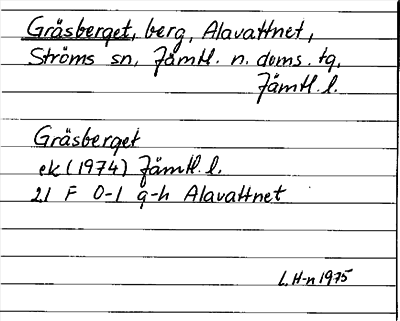 Gräsberget, berg, Alavattnet,
Ströms sn, Jämtl. n. doms. tg,
Jämtl. l.
Gräsberget
ek (1974) Jämtl. l.
21 F 0-1 g-h Alavattnet
L. H-n 1975